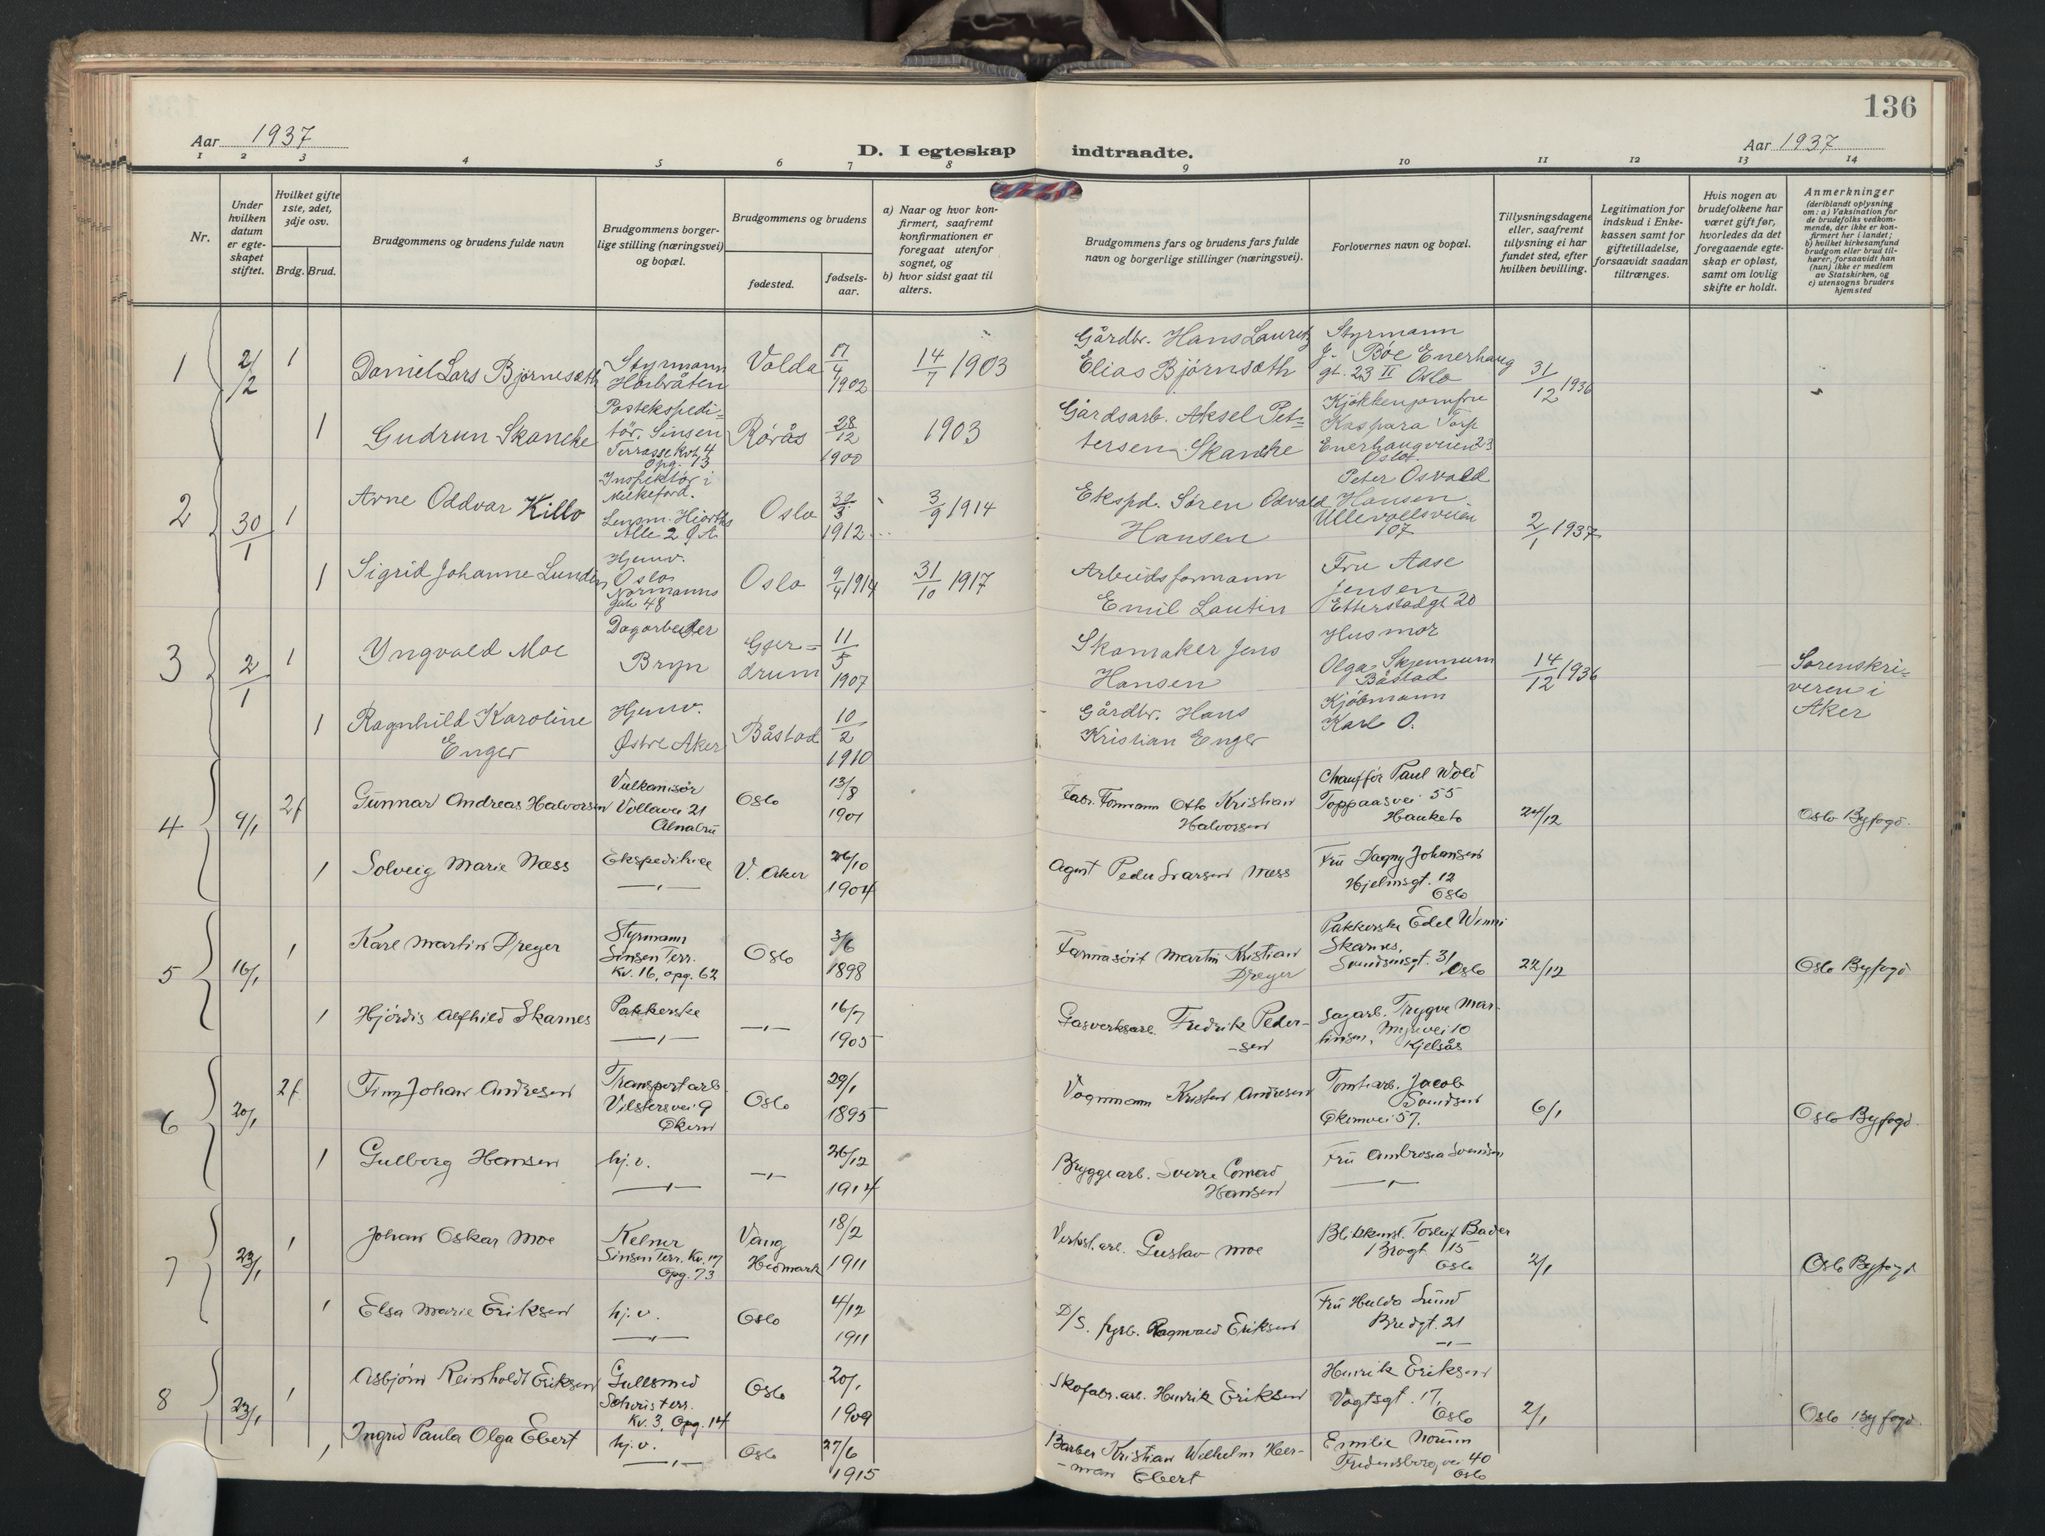 136
Aar 1937
D. I egteskap indtraadte.
Aar 1937
1 2 3 4 5 6 7 8 9 10 11 12 13 14
Nr.
Under
hvilken
datum
er egte-
skapet
stiftet.
Hvilket gifte
1ste, 2det,
3dje osv.
Brdg. Brud.
Brudgommens og brudens fulde navn
Brudgommens borger-
lige stilling (næringsvei)
og bopæl.
Brudgommens og brudens
fødested.
fødsels-
aar.
a) Naar og hvor kon-
firmert, saafremt
konfirmationen er
foregaat utenfor
sognet, og
b) hvor sidst gaat til
alters.
Brudgommens fars og brudens fars fulde
navn og borgerlige stillinger (næringsvei).
Forlovernes navn og bopæl.
Tillysningsdagene
eller, saafremt
tillysning ei har
fundet sted, efter
hvilken bevilling.
Legitimation for
indskud i Enke-
kassen samt for
giftetilladelse,
forsaavidt saadan
tiltrænges.
Hvis nogen av
brudefolkene har
været gift før,
hvorledes da det
foregaaende egte-
skap er opløst,
samt om lovlig
skifte er holdt.
Anmerkninger
(deriblandt oplysning
om: a) Vaksination for
de brudefolks vedkom-
mende, der ikke er kon-
firmert her i landet;
b) hvilket kirkesamfund
brudgom eller brud til-
hører, forsaavidt han
(hun) ikke er medlem
av Statskirken, og
c) utensogns bruders
hjemsted
1 2/2 1
Daniel Lars Bjørnesæth
Styrmann
Volda
17/4
1902
14/7 1903
Gårdbr. Hans Lauritz
Elias Bjørnsæth
Styrmann
J. Bøe Enerhaug
gt. 23 II Oslo
31/12 1936
1
Gudrun Skancke
Postekspedi-
tør. Sinsen
Terrasse Kvt. 4
Opg. 13
Rørås
28/12
1900
1903
Gårdsarb. Aksel Pet-
tersen Skancke
Kjøkkenjomfru
Kaspara Torp
Enerhaugveien 23
Oslo.
2 30/1 1
Arne Oddvar Killo
Inspektør i
Lensm. Hiorths
Alle 2 9 A
Oslo
30/3
1912
3/9 1914
Ekspd. Søren Odvald
Hansen
Peter Osvald
Hansen
Ullevollsveien
107
2/1 1937
1
Sigrid Johanne Lundin
Hjemv.
Oslo
Normanns
gate 48
Oslo
9/4 1914
31/10 1917
Arbeidsformann
Emil Lautin
Fru Aase
Jensen
Etterstadgt 20
3 2/1 1
Yngvald Moe
Dagarbeider
Bryn
Gjer-
drum
11/5
1907
Skomaker Jens
Hansen
Husmor
Olga Skjennum
Båstad
14/12 1936
Sorenskri-
veren i
Aker
1
Ragnhild Karoline
Enger
Hjemv.
Østre Aker
Båstad
10/2
1910
Gårdbr. Hans
Kristian Enger
Kjøbmann
Karl O.
4 9/1 2f
Gunnar Andreas Halvorsen
Vulkanisør
Vollavei 21
Alnabru
Oslo
13/8
1901
Fabr. Formann Otto Kristian
Halvorsen
Chauffør Paul Wold
Toppaasvei 55
Hauketo
24/12
Oslo Byfogd.
1
Solveig Marie Næss
Ekspeditrice
—„—
V. Aker
26/10
1904
Agent Peder Ivarsen Næss
Fru Dagny Johansen
Hjelmsgt. 12
Oslo
5 16/1 1
Karl Martin Dreyer
Styrmann
Sinsen Terr.
Kv. 16, opg. 62
Oslo
3/6
1898
Farmasøit Martin Kristian
Dreyer
Pakkerske Edel Winni
Skarnes,
Svendsensgt. 31
Oslo
22/12
Oslo Byfogd
1
Hjørdis Alfhild Skarnes
Pakkerske
—„—
—„—
16/7
1905
Gasverksarb. Fredrik Peder-
-sen
Sagarb. Trygve Mar-
tinsen, Myrvei 10
Kjelsås
6 20/1 2f
Finn Johan Andresen
Transportarb.
Vilstersvei 9
Økern
Oslo
29/1
1895
Vognmann Kristen Andresen
Tomtearb. Jacob
Svendsen
Økernvei 57.
6/1
Oslo Byfogd.
1
Gulborg Hansen
hj.v.
—„—
—„—
26/12
1914
Bryggearb. Sverre Conrad
Hansen
Fru Ambrosia Svendsen
—„—
7 23/1 1
Johan Oskar Moe
Kelner
Sinsen Terr. Kv. 17
Opg. 73
Vang
Hedmark
18/2
1911
Verkst.arb. Gustav Moe
Blikkensl. Torleif Bader
Brogt 15
Oslo
2/1
Oslo Byfogd
1
Elsa Marie Eriksen
hj.v.
—„—
Oslo
4/12
1911
D/S. fyrb. Ragnvald Eriksen
Fru Hulda Lund
Bredgt. 21
—„—
8 23/1 1
Asbjørn Reinholdt Eriksen
Gullsmed
Kv. 3, Opg. 14
Oslo
20/1
1909
Skofabr.arb. Henrik Eriksen
Henrik Eriksen
Vogtsgt. 17,
Oslo
2/1
Oslo Byfogd.
1
Ingrid Paula Olga Ebert
hj.v.
—„—
Oslo
27/6
1915
Barber Kristian Wilhelm Her-
-man Ebert
Emilie Norum
Fredensborgvei 40
Oslo